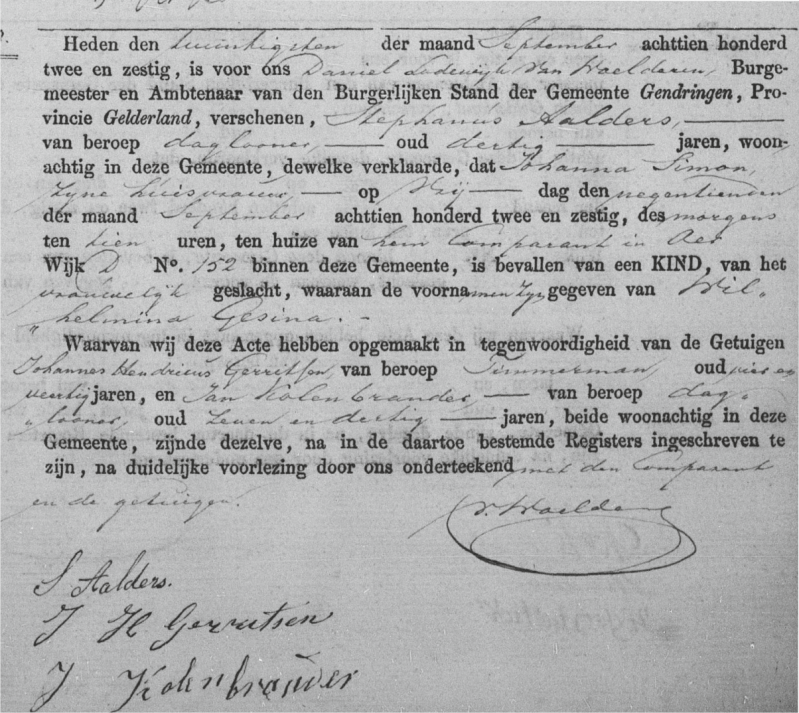 Heden den twintigsten der maand September achttien honderd
twee en zestig, is voor ons Daniel Lodewijk Van Woelderen, Burge-
meester en Ambtenaar van den Burgerlijken Stand der Gemeente Gendringen, Pro-
vincie Gelderland, verschenen, Stephanus Aalders,
van beroep daglooner, oud dertig jaren, woon-
achtig in deze Gemeente, dewelke verklaarde, dat Johanna Simon,
zyne huisvrouw, op Vrij dag den negentienden
der maand September achttien honderd twee en zestig, des morgens
ten tien uren, ten huize van hem Comparant in
Wijk D No. 152 binnen deze Gemeente, is bevallen van een KIND, van het
vrouwelijk geslacht, waaraan de voornamen zyn gegeven van Wil„
„helmina Gesina. -
Waarvan wij deze Acte hebben opgemaakt in tegenwoordigheid van de Getuigen
Johannes Hendricus Gerritsen, van beroep Timmerman, oud vier en
veertig jaren, en Jan Kolenbrander van beroep dag„
„looner, oud zeven en dertig jaren, beide woonachtig in deze
Gemeente, zijnde dezelve, na in de daartoe bestemde Registers ingeschreven te
zijn, na duidelijke voorlezing door ons onderteekend met den Comparant
en de getuigen.
v. Woelderen
S Aalders.
J H Gerritsen
J Kolenbrander